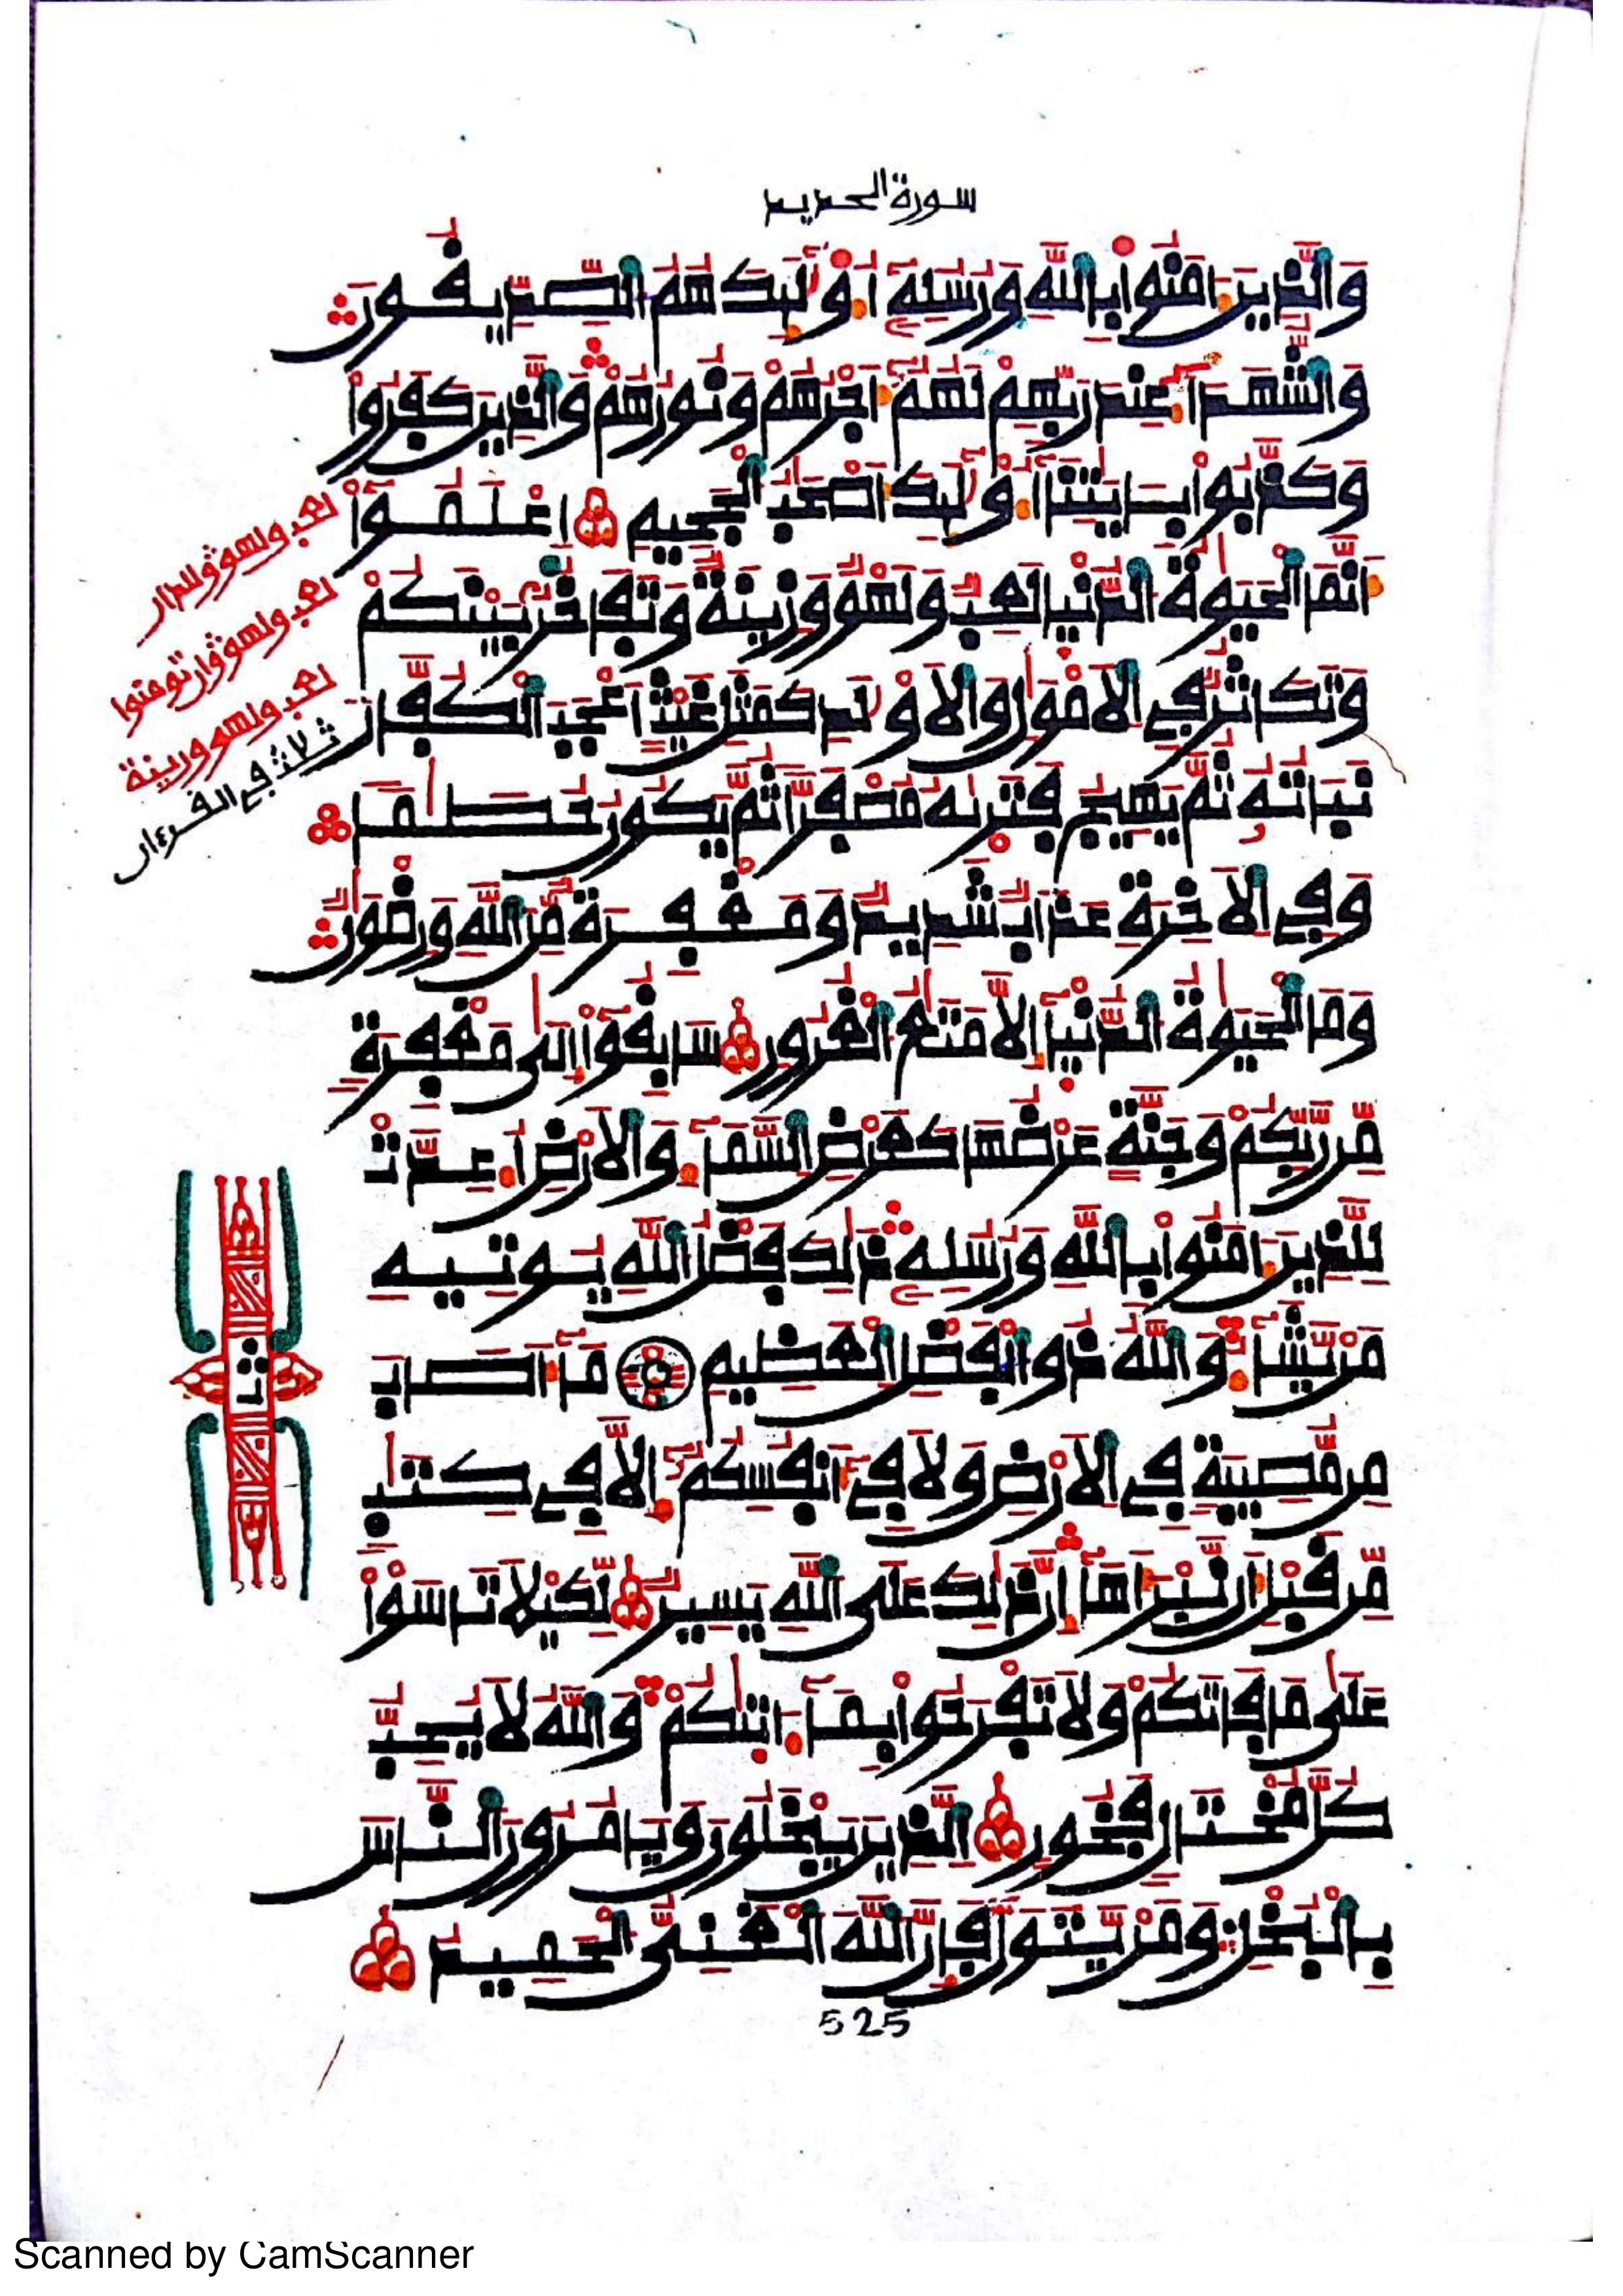 سورة الحديد
وَالذِينَ ءَامَنُواْ بِاللَّهِ وَرُسُلِهِ أُوْلَٰئِكَ هُمُ الصِّدِّيقُونَ
وَالشُّهَدَاءُ عِندَ رَبِّهِمْ لَهُمْ أَجْرُهُمْ وَنُورُهُمْ وَالذِينَ كَفَرُواْ
وَكَذَّبُواْ بِـَٔايَٰتِنَا أُوْلَٰئِكَ أَصْحَٰبُ الْجَحِيمِ اعْلَمُواْ
أَنَّمَا الْحَيَوٰةُ الدُّنْيَا لَعِبٌ وَلَهْوٌ وَزِينَةٌ وَتَفَاخُرٌ بَيْنَكُمْ
وَتَكَاثُرٌ فِي الْأَمْوَٰلِ وَالْأَوْلَٰدِ كَمَثَلِ غَيْثٍ أَعْجَبَ الْكُفَّارَ
نَبَاتُهُ ثُمَّ يَهِيجُ فَتَرَىٰهُ مُصْفَرّٗا ثُمَّ يَكُونُ حُطَٰمٗا
وَفِي الْأٓخِرَةِ عَذَابٌ شَدِيدٌ وَمَغْفِرَةٌ مِّنَ اللَّهِ وَرِضْوَٰنٌ
وَمَا الْحَيَوٰةُ الدُّنْيَا إِلَّا مَتَٰعُ الْغُرُورِ سَابِقُواْ إِلَىٰ مَغْفِرَةٍ
مِّن رَّبِّكُمْ وَجَنَّةٍ عَرْضُهَا كَعَرْضِ السَّمَاءِ وَالْأَرْضِ أُعِدَّتْ
لِلَّذِينَ ءَامَنُواْ بِاللَّهِ وَرُسُلِهِ ذَٰلِكَ فَضْلُ اللَّهِ يُوتِيهِ
مَنْ يَّشَاءُ وَاللَّهُ ذُو الْفَضْلِ الْعَظِيمِ مَا أَصَابَ
مِن مُّصِيبَةٍ فِي الْأَرْضِ وَلَا فِي أَنفُسِكُمْ إِلَّا فِي كِتَٰبٍ
مِّن قَبْلِ أَن نَّبْرَأَهَا إِنَّ ذَٰلِكَ عَلَى اللَّهِ يَسِيرٌ لِّكَيْلَا تَاسَوْاْ
عَلَىٰ مَا فَاتَكُمْ وَلَا تَفْرَحُواْ بِمَا ءَاتَىٰكُمْ وَاللَّهُ لَا يُحِبُّ
كُلَّ مُخْتَالٍ فَخُورٍ الذِينَ يَبْخَلُونَ وَيَامُرُونَ النَّاسَ
بِالْبُخْلِ وَمَنْ يَّتَوَلَّ فَإِنَّ اللَّهَ الْغَنِيُّ الْحَمِيدُ
لعب ولهو وللدار
لعب ولهو وإن تومنوا
لعب ولهو وزينة
ثلاث في القرءان
525
Scanned by CamScanner